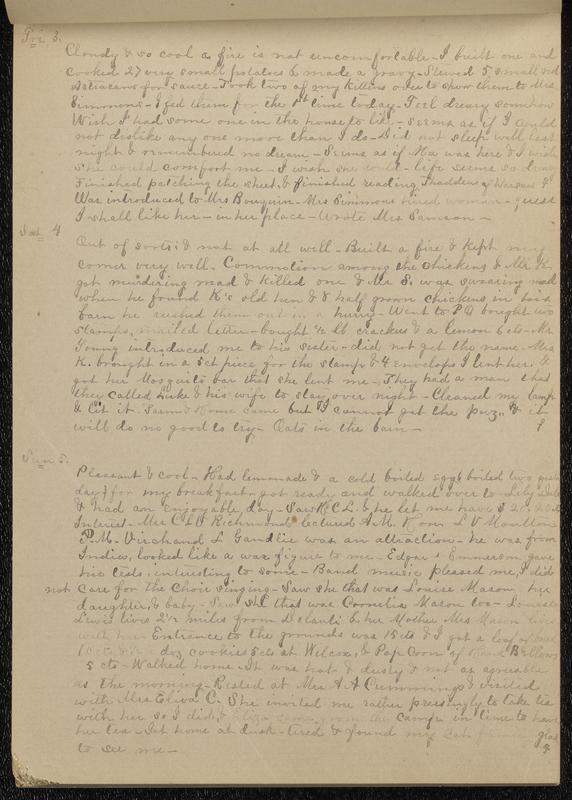 Fri 3.
Cloudy & so cool a fire is not uncomfortable - I built one and
cooked 27 very small potatoes & made a gravy - Stewed 5 small red
for sauce - Took two of my kittens over to show them to Mrs,
Simmons - I fed them for the 1st time today - Feel dreary somehow
Wish I had some one in the house to like - seems as if I could
not dislike any one more than I do - Did not sleep well last
night & remembered no dream - Seems as if Ma was here & I wish
she could comfort me - I wish she could - life seems so dreary
Finished patching the sheet & finished reading Thaddeus of Warsaw I
Was introduced to Mrs Bouquin - Mrs Simmons hired woman - guess
I shall like her - in her place - Wrote Mrs Samson -
Sat 4
Out of sorts & not at all well - Built a fire & kept my
corner very well. Commotion among the chickens & Mr K.
got murdering mad & killed one & Mr S. was swearing mad
when he found K's old hen & 8 half grown chickens in his
barn he rushed them out in a hurry - Went to P.O. bought two
stamps, mailed letter - bought ½ lb crackers & a lemon 6 cts - Mr
Young introduced me to his sister - did not get the name - Mrs
K. brought in a 5ct piece for the stamp & 4 envelops I lent her. I
got her Mosquito bar that she lent me - They had a man that
they called Luke & his wife to stay over night - Cleaned my lamp
& lit it. Farm & Home came but I cannot get the puz., & it
will do no good to try - Oats in the barn -
Sun 5.
Pleasant & cool - Had lemonade & a cold boiled egg & boiled two
day) for my breakfast - got ready and walked over to Lily Dale
& had an enjoyable day - Saw H C L. & he let me have $20,
Interest - Mrs C L V Richmond lectured A.M. Hon. L V Moulton
P.M. Virchand L Gandhi was an attraction - he was from
India, looked like a wax figure to me - Edgar Emmerson gave
his tests, interesting to some - Band music pleased me, I did
not care for the Choir singing - Saw she that was Louise Mason, her
daughter, & baby - Saw she that was Cornelia Mason too - Louise
Lewis lives 2½ miles from Delanti & her Mother Mrs Mason lives
with her. Entrance to the grounds was 15 cts & I got a loaf of
doz cookies 5 cts at Wilcox, & Pop Corn of
5 cts - Walked home. It was hot & dusty & not as agreeable
as the morning - Rested at Mrs A A Cummings & visited
with Mrs Eliza C. She invited me rather pressingly to take tea
with her so I did & Eliza came from the camp in time to have
her tea - Got home at dusk - tired & found my cats glad
to see me -